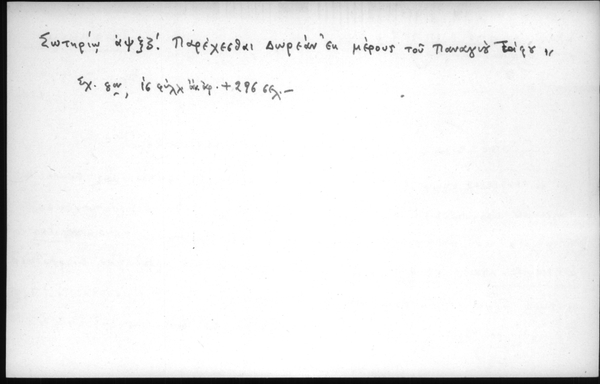 Σωτηρίῳ ͵αψξζ΄. Παρέχεσθαι Δωρεὰν ἐκ μέρους τοῦ Παναγίου Τάφου „
Σχ. 8ον, ις φύλλα + 296 σελ. –